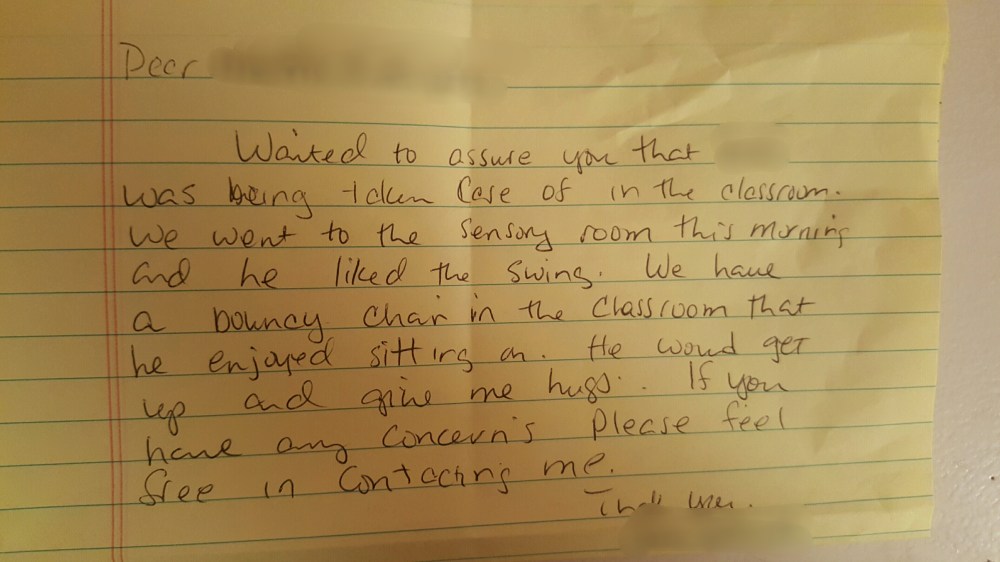 Dear
Wanted to assure you that
was being taken Care of in the classroom.
We went to the sensory room this morning
and he liked the swing. We have
a bouncy chair in the classroom that
he enjoyed sitting on. He would get
up and give me hugs. If you
have any concern's please feel
free in Contacting me.